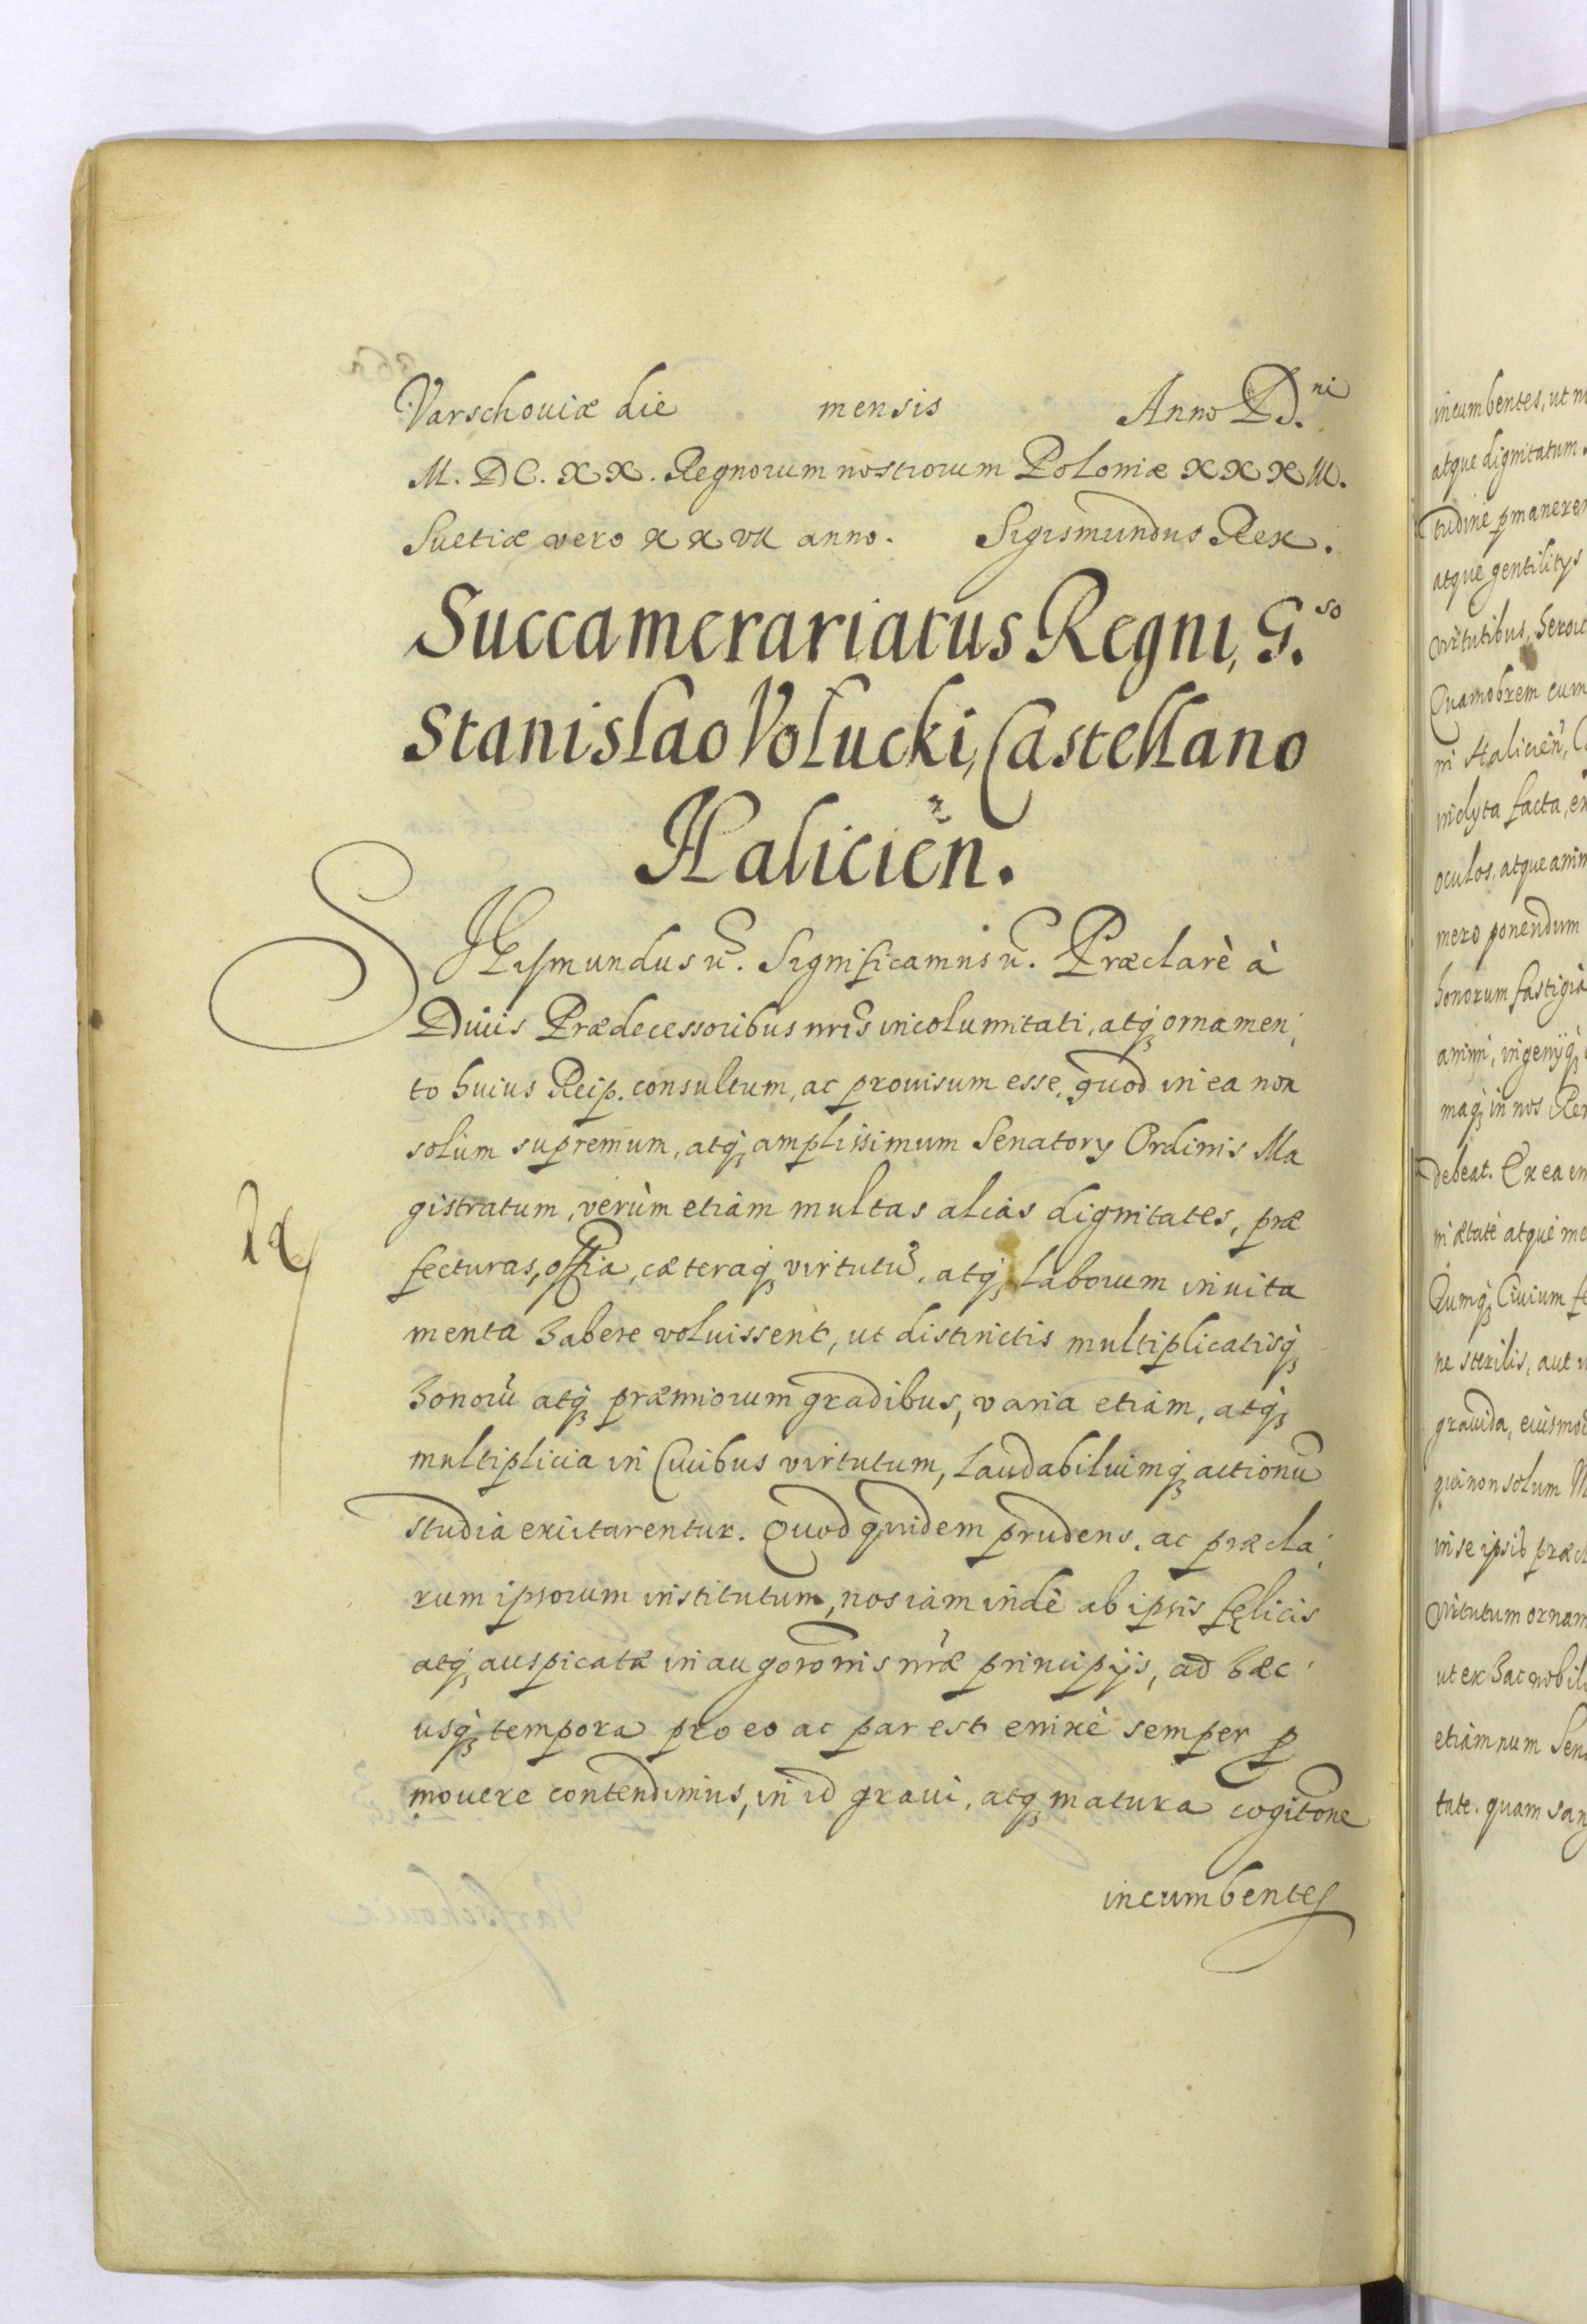 Varschouiæ die mensis Anno D.ni
M. DC. XX. Regnorum nostrorum Poloniæ XXXIII.
Suetiæ vero XXVII anno. Sigismundus Rex.
Succamerariatus Regni, G.so
Stanislao Volucki, Castellano
Halicień.
SIGismundus &c. Significamus &c. Præclarè à
Diuis Prædecessoribus nr̃is incolumitati, atq; ornamen,
to huius Reip. consultum, ac prouisum esse, quod in ea non
solùm supremum, atq; amplissimum Senatorij Ordinis Ma
gistratum, verùm etiam multas alias dignitates, præ
fecturas, offia, cæteraq; virtutũ, atq; laborum inuita
menta habere voluissent, ut distinctis multiplicatisq;
honorũ atq; præmiorum gradibus, varia etiam, atq;
multiplicia in Ciuibus virtutum, laudabiliuimq; actionũ
studia excitarentur. Quod quidem prudens, ac præcla,
rum ipsorum institutum, nos iam indè ab ipsis fęlicis
atq; auspicatæ inaugõronis nr̃æ principijs, ad hæc
usq; tempora pro eo ac par est enixè semper p
mouere contendimus, in id graui, atq; matura cogitõne
incumbentes
incumbentes, ut
atque dignitatum
tudine pmanere
atque gentilitys
virtutibus, heroic
Quamobrem cum
ni Halicień,
inclyta facta,
oculos, atque anim
mero ponendum
honorum fastigia
animi, ingenijq;
maq; in nos Re
debeat. Ex ea en
in ætate atque me
Cumq; Ciuium fe
ne sterilis, aut
grauida, eiusmod
qui non solum M
in se ipsis præcl
virtutum ornam
ut ex hac nobili
etiamnum Sen
tate. quam san